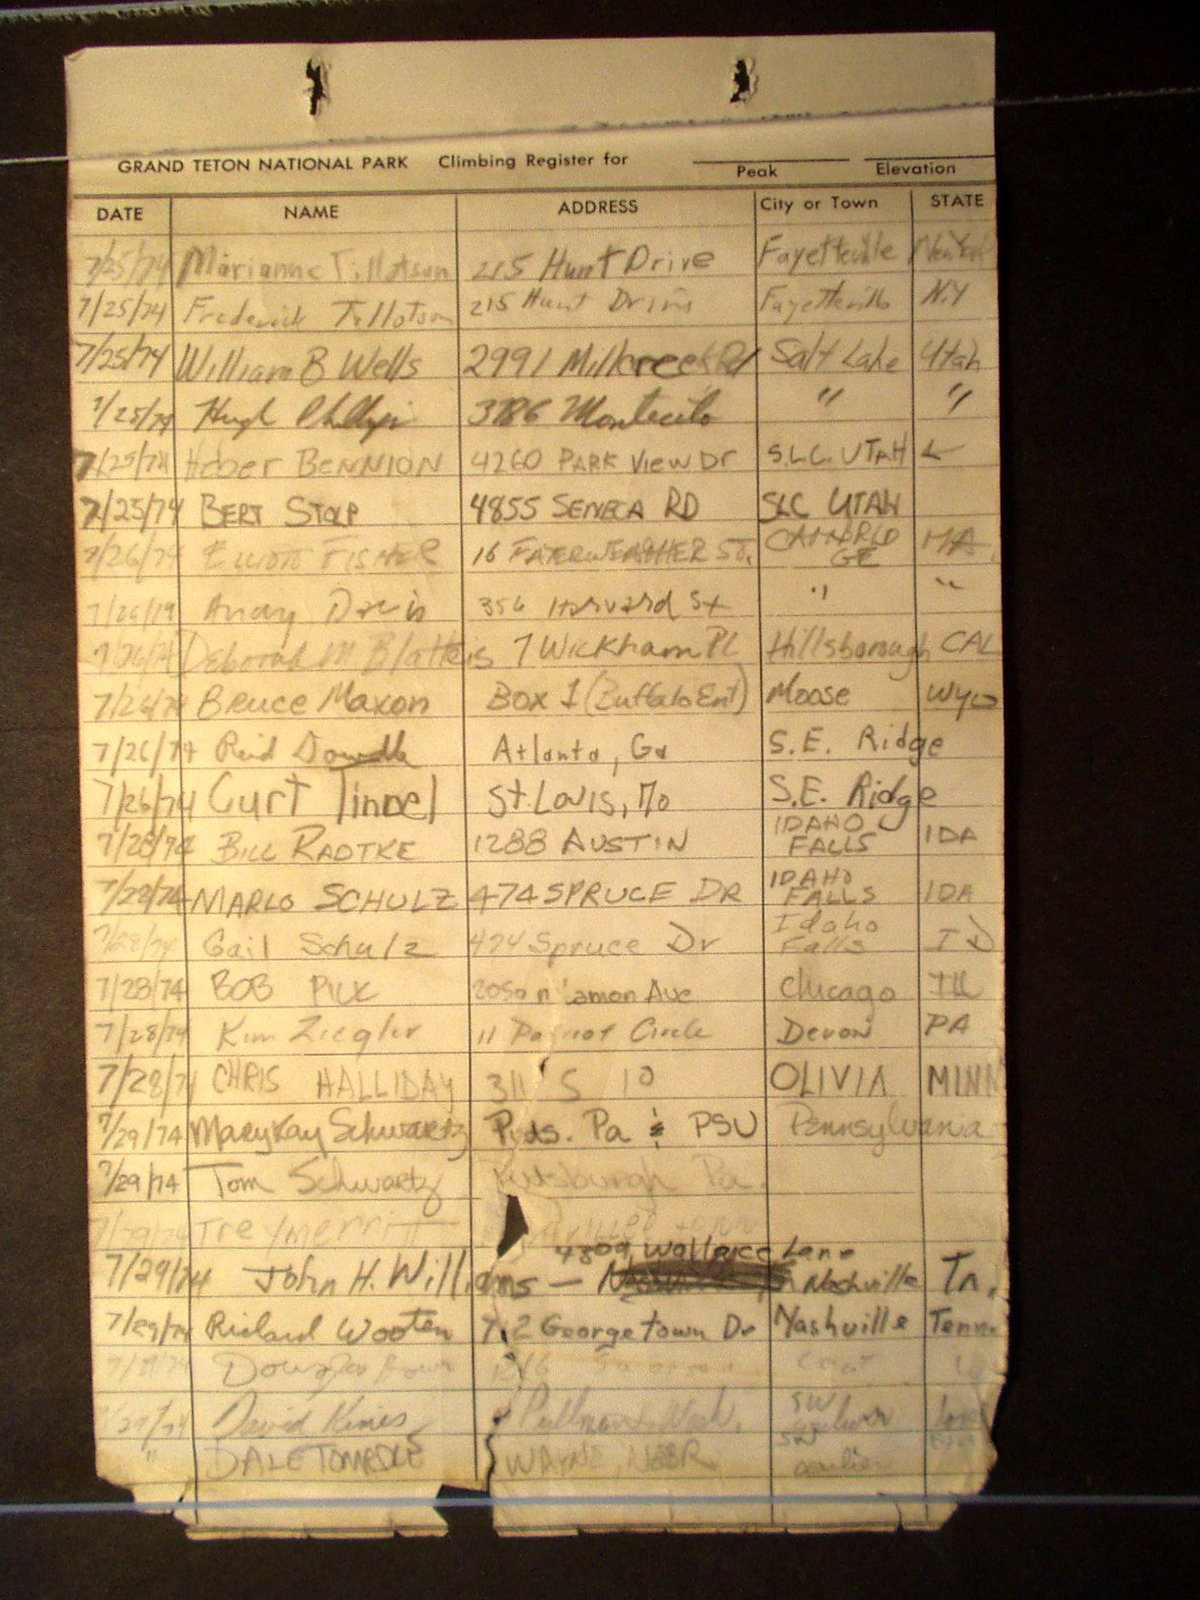 GRAND TETON NATIONAL PARK Climbing Register for Peak Elevation
DATE NAME ADDRESS City or Town STATE
7/25/74 Marianne Tillotson 215 Hunt Drive Fayetteville New York
7/25/74 Frederick Tillotson 215 Hunt Drive Fayetteville N.Y
7/25/74 William B Wells 2991 Millcreek Rd Salt Lake Utah
7/25/74 Hugh Phillips 3786 Montecito " "
7/25/74 Heber BENNION 4260 PARK VIEW Dr S.L.C. UTAH ←
7/25/74 BERT STOLP 4855 SENECA RD SLC UTAH
7/26/74 ELLIOTT FISHER 16 FAYERWEATHER ST. CAMBRIDGE MA.
7/26/74 Andy Davis 356 Harvard St " "
7/26/74 Deborah M Blatteis 7 Wickham Pl Hillsborough CAL
7/26/74 Bruce Maxon Box 1 (Buffalo Ent) Moose Wyo
7/26/74 Reid Atlanta, Ga S.E. Ridge
7/26/74 Curt Tindel St. Louis, Mo S.E. Ridge
7/28/74 BILL RADTKE 1288 AUSTIN IDAHO FALLS IDA
7/28/74 MARLO SCHULZ 474 SPRUCE DR IDAHO FALLS IDA
7/28/74 Gail Schulz 474 Spruce Dr Idaho Falls ID
7/28/74 BOB 2050 n Ave Chicago ILL
7/28/74 Kim Ziegler 11 Patriot Circle Devon PA
7/28/74 CHRIS HALLIDAY 311 S 10 OLIVIA MINN
7/29/74 MaryKay Schwartz Pa & PSU Pennsylvania
7/29/74 Tom Schwartz Pittsburgh Pa.
7/29/74 Trey merritt
4309 Wallace Lane
7/29/74 John H. Williams — Nashville Tn.
7/29/74 Richard Wooten 712 Georgetown Dr Nashville Tenn.
Douglas
7/29/74 David Pullman, Wash. SW
" DALE WAYNE, NEBR